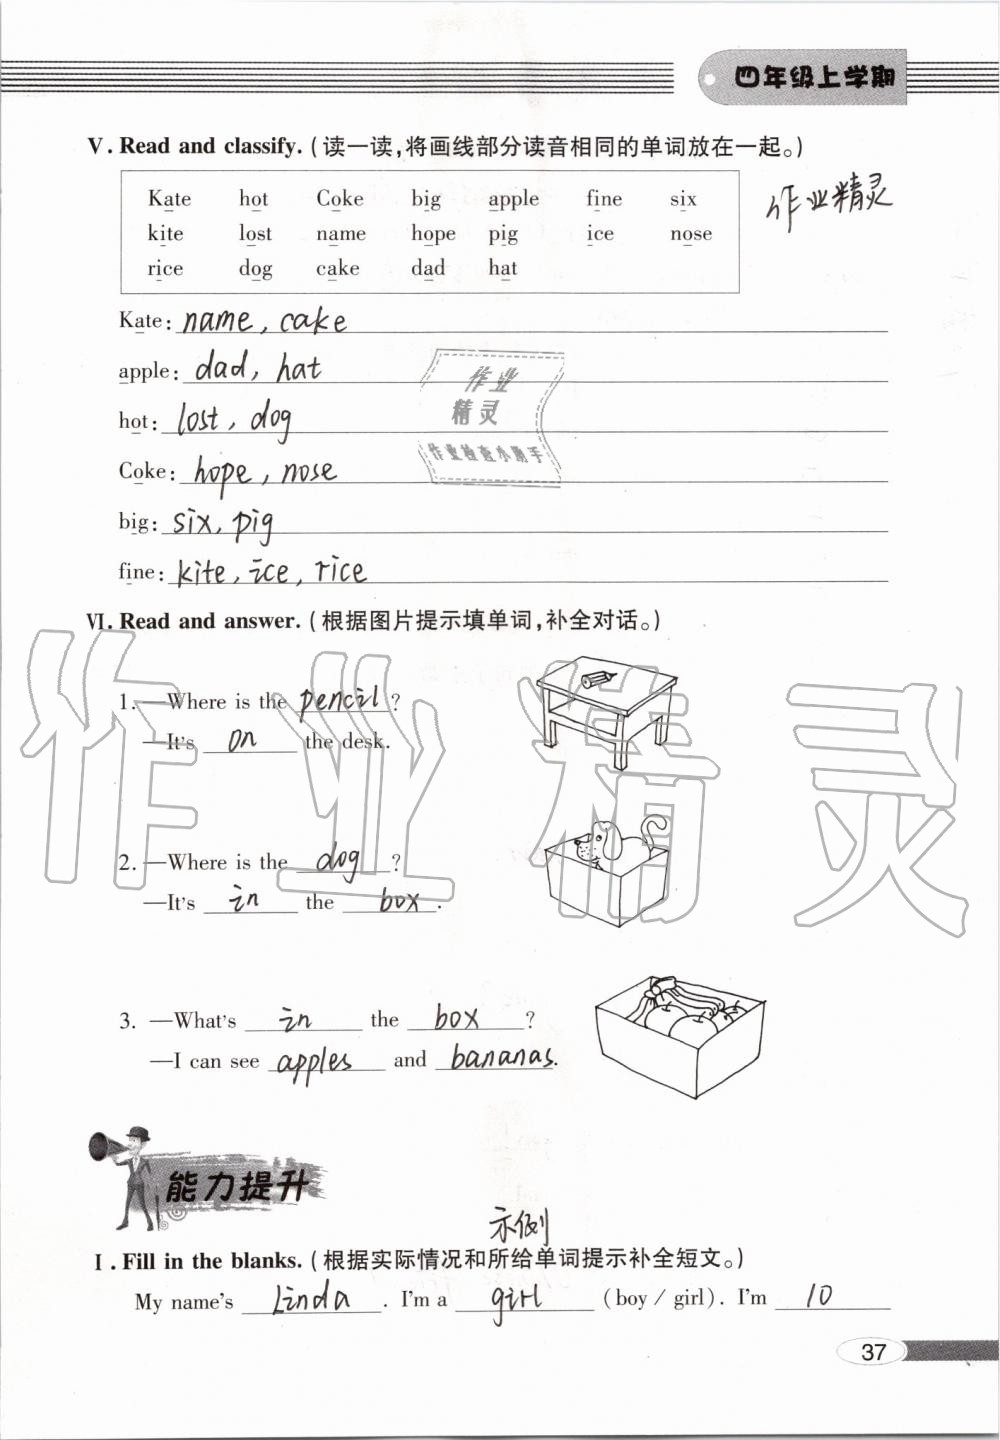 四年级上学期
Ⅴ. Read and classify. (读一读,将画线部分读音相同的单词放在一起。)
作业精灵
Kate hot Coke big apple fine six
kite lost name hope pig ice nose
rice dog cake dad hat
Kate: name, cake
apple: dad, hat
hot: lost, dog
Coke: hope, nose
big: six, pig
fine: kite, ice, rice
作业
精灵
作业检查小助手
Ⅵ. Read and answer. (根据图片提示填单词,补全对话。)
1. —Where is the pencil ?
—It's on the desk.
2. —Where is the dog ?
—It's in the box .
3. —What's in the box ?
—I can see apples and bananas.
作业精灵
能力提升
示例
Ⅰ. Fill in the blanks. (根据实际情况和所给单词提示补全短文。)
My name's Linda . I'm a girl (boy / girl). I'm 10
37